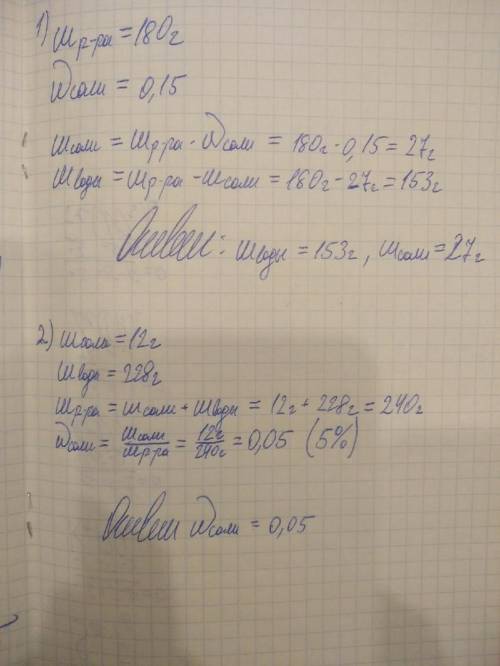 1) mр-ра = 180г
wсоли = 0,15
mсоли = mр-ра · wсоли = 180г · 0,15 = 27г
mводы = mр-ра - mсоли = 180г - 27г = 153г
Ответ: mводы = 153г, mсоли = 27г
2) mсоли = 12г
mводы = 228г
mр-ра = mсоли + mводы = 12г + 228г = 240г
wсоли = mсоли/mр-ра = 12г/240г = 0,05 (5%)
Ответ wсоли = 0,05